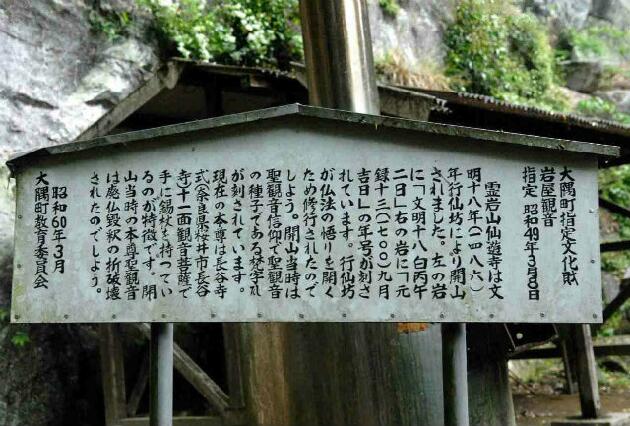 大隅町指定文化財
岩屋観音
指定 昭和49年3月8日
霊岩山仙遊寺は文
明十八年(一四八六)
年行仙坊により開山
されました。左の岩
に「文明十八白丙午
二日」右の岩に「元
録十三(一七〇〇)九月
吉日」の年号が刻さ
れています。行仙坊
が仏法の悟りを開く
ため修行されたので
しょう。開山当時は
聖観音信仰で聖観音
の種子である梵字丸
が刻されています。
現在の本尊は長谷寺
式(奈良県桜井市長谷
寺)十一面観音菩薩で
手に錫杖を持ってい
るのが特徴です。開
山当時の本尊聖観音
は廃仏毀釈の折破壊
されたのでしょう。
昭和60年3月
大隅町教育委員会